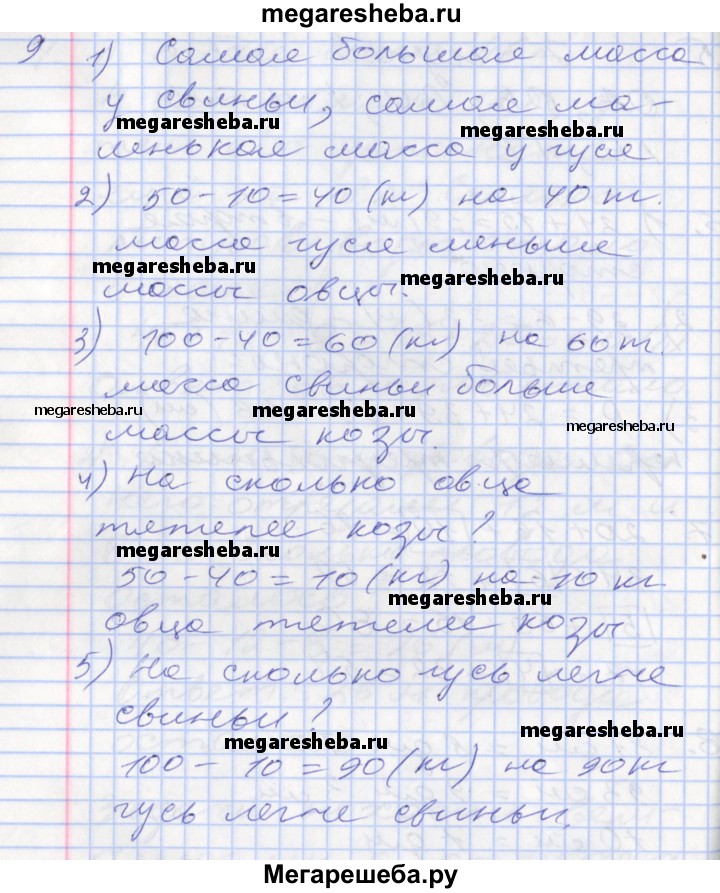 megaresheba.ru
9 1) Самая большая масса
у свиньи, самая ма-
megaresheba.ru megaresheba.ru
ленькая масса у гуся
2) 50-10=40 (кг) на 40 кг.
масса гуся меньше
megaresheba.ru megaresheba.ru
массы овцы.
3) 100-40=60 (кг) на 60 кг.
масса свиньи больше
megaresheba.ru megaresheba.ru megaresheba.ru
массы козы.
4) На сколько овца
тяжелее козы?
megaresheba.ru
50-40=10 (кг) на 10 кг
megaresheba.ru
овца тяжелее козы
5) На сколько гусь легче
свиньи?
megaresheba.ru megaresheba.ru
100-10=90 (кг) на 90 кг
гусь легче свиньи.
Мегарешеба.ру